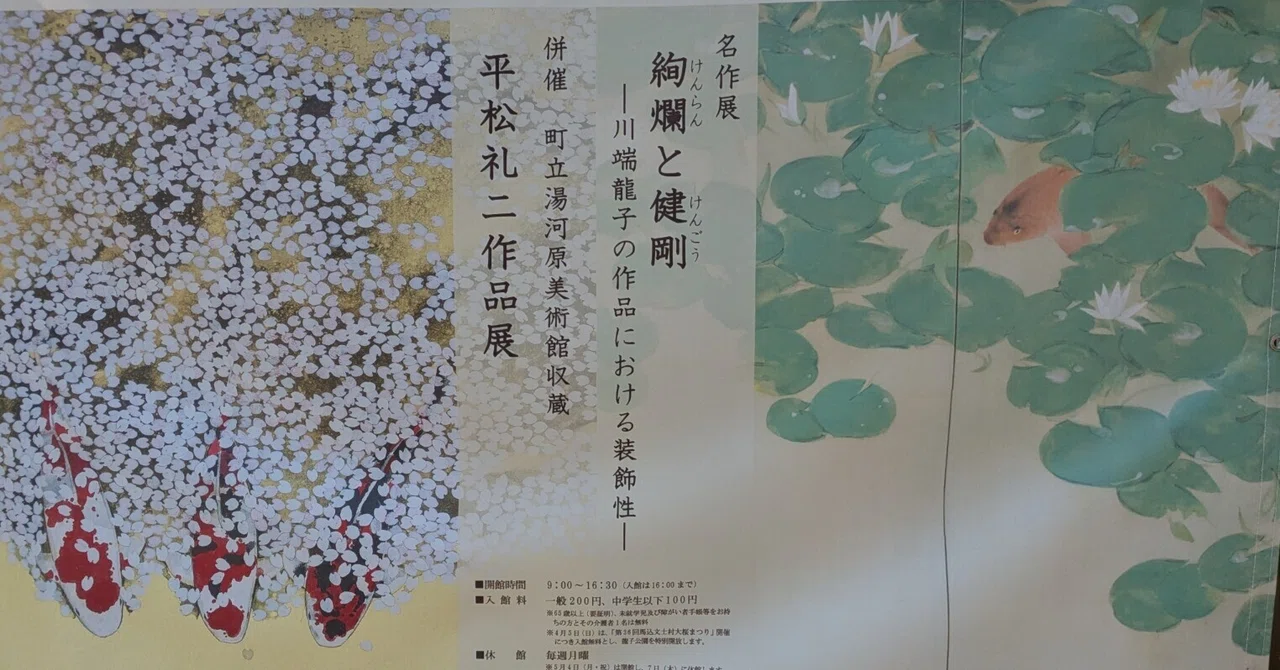 名作展
絢爛と健剛
けんらん
けんごう
―川端龍子の作品における装飾性―
併催 町立湯河原美術館収蔵
平松礼二作品展
■開館時間 9:00~16:30(入館は16:00まで)
■入館料 一般200円、中学生以下100円
※65歳以上(要証明)、未就学児及び障がい者手帳等をお持
ちの方とその介護者1名は無料
※4月5日(日)は、「第38回馬込文士村大桜まつり」開催
につき入館無料とし、龍子公園を特別開放します。
■休館 毎週月曜
※5月4日(月・祝)は開館し、7日(木)に休館します。